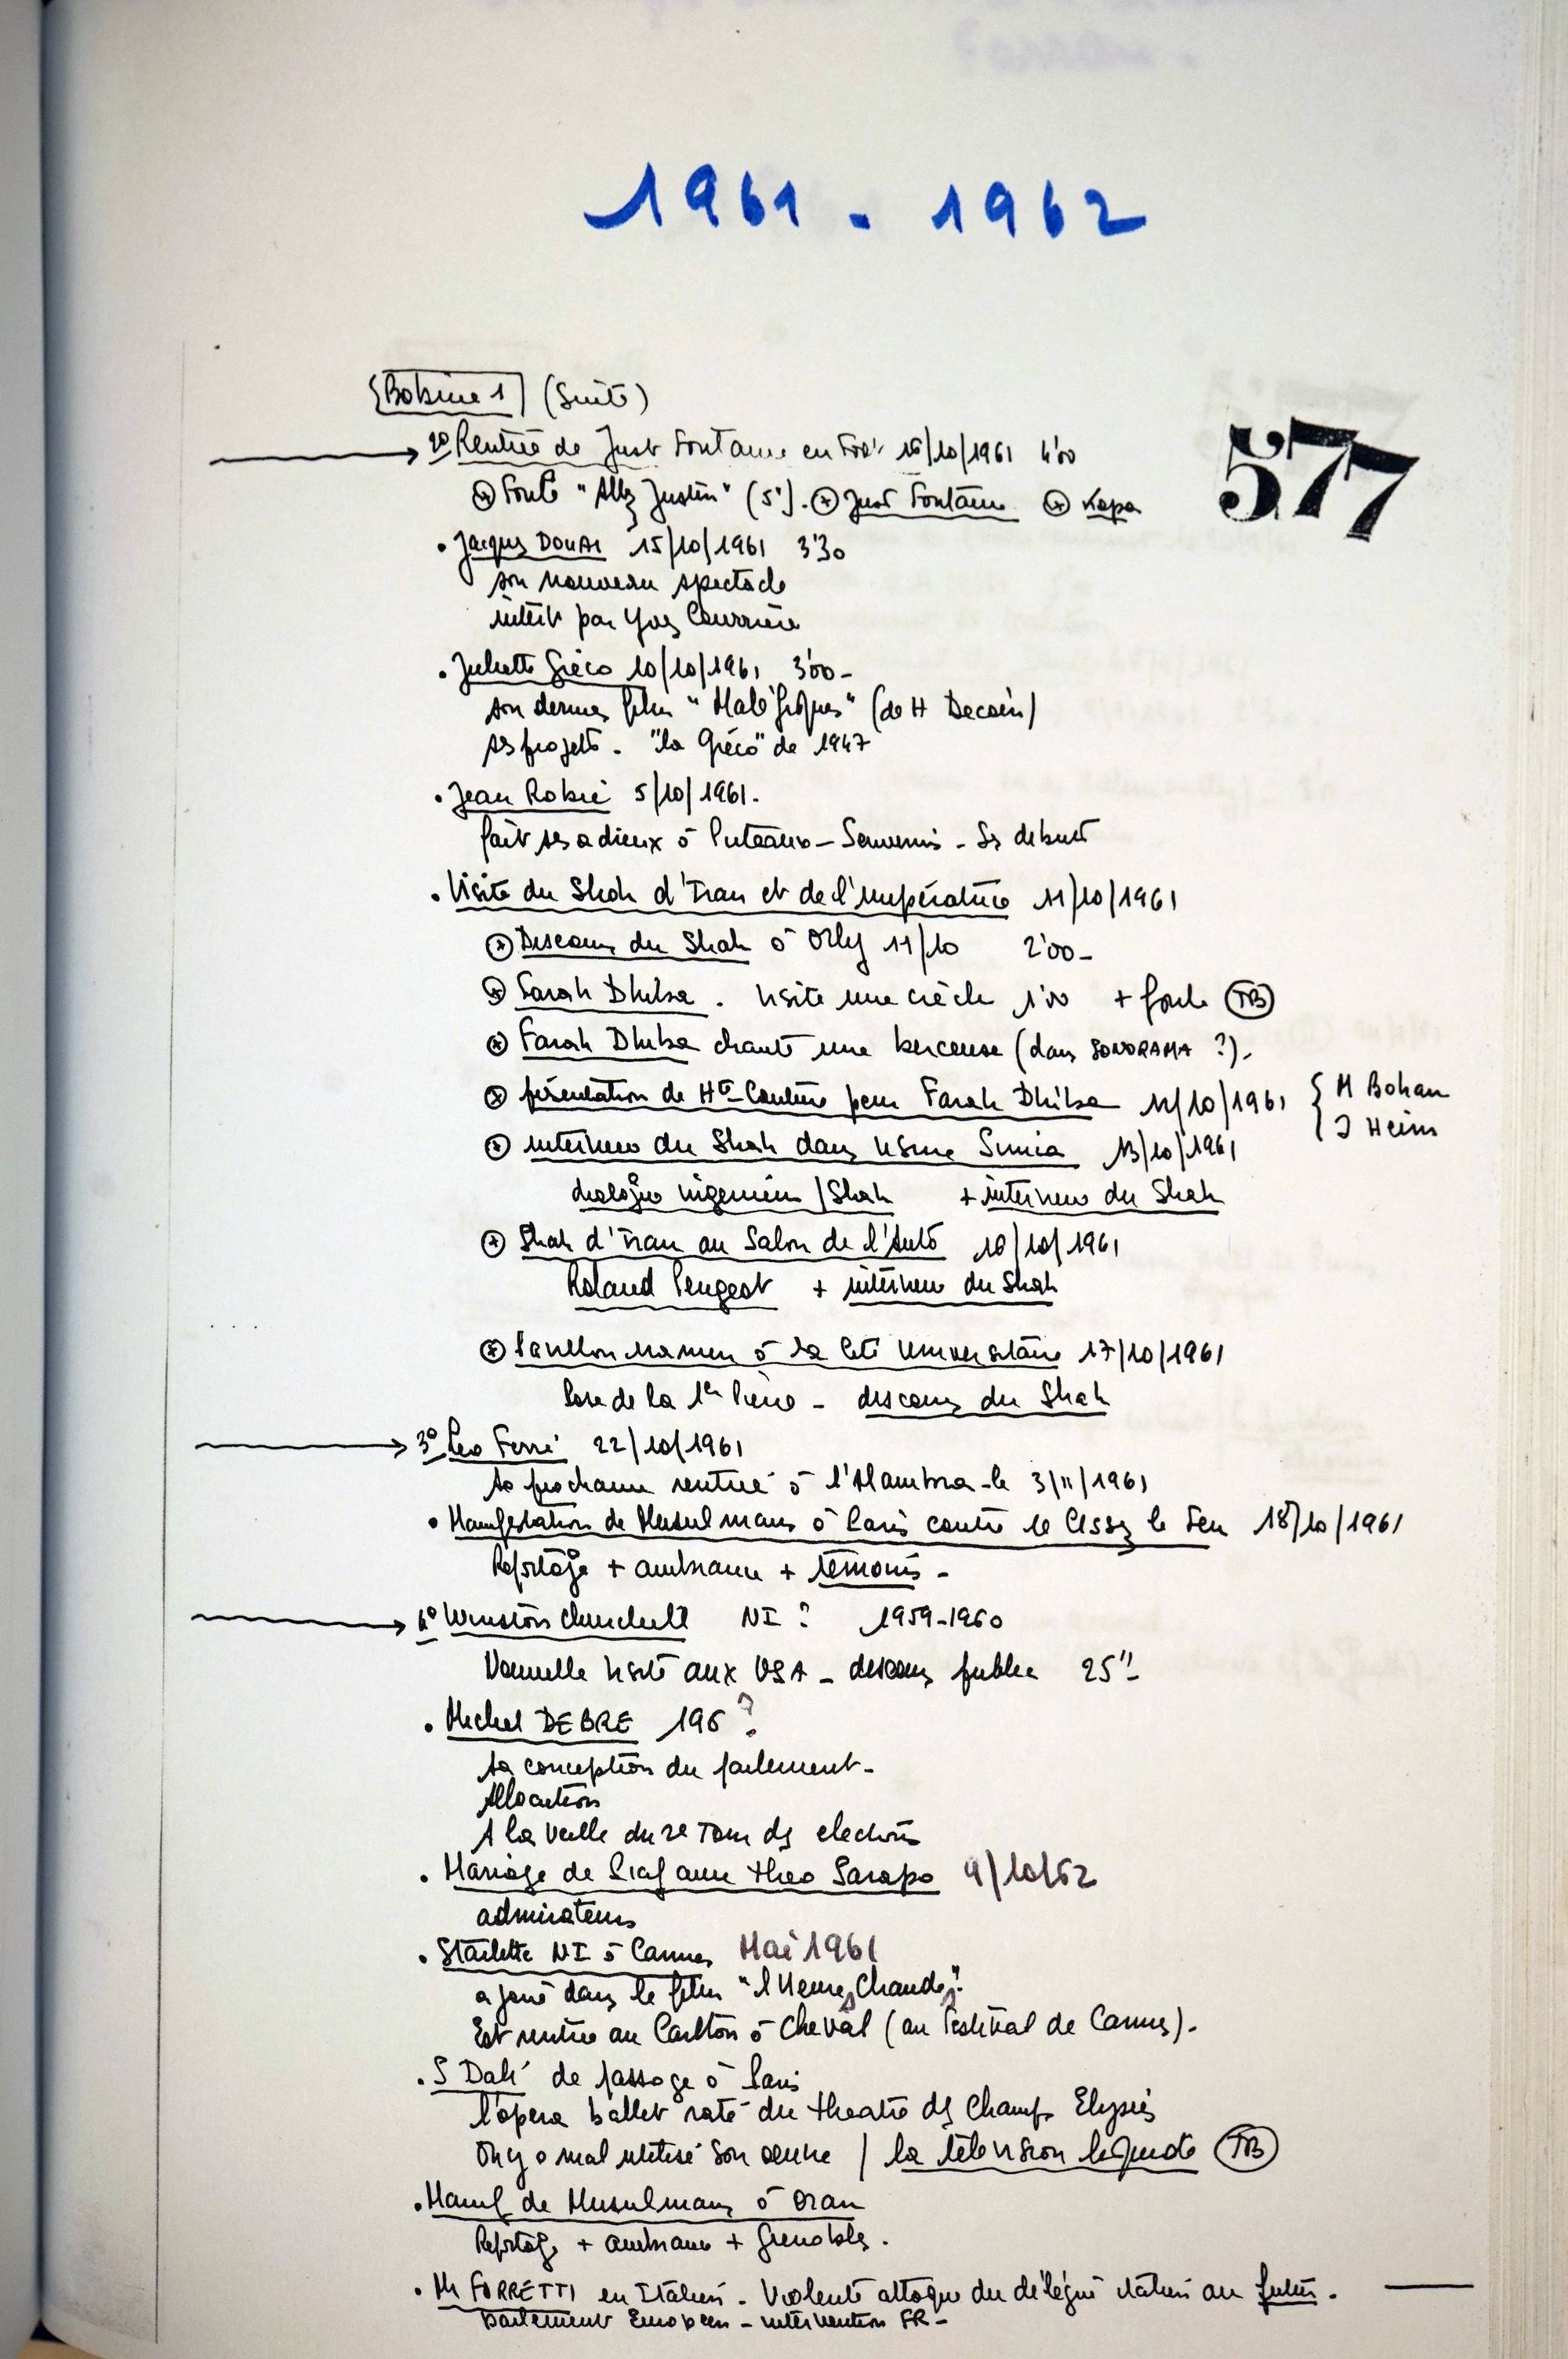 1961 - 1962
577
Bobine 1 (Suite)
2° Rentrée de Just Fontaine en 16/10/1961 4'00
Foule "Allez Justin" (5"). Just Fontaine Kopa
• Jacques DOUAI 15/10/1961 3'30
son nouveau spectacle
interv par Yves Courrière
• Juliette Gréco 10/10/1961 3'00 -
son dernier film "Maléfiques" (de H Decoin)
ses projets - "la Gréco" de 1947
• Jean Robic 5/10/1961.
fait ses adieux à Puteaux - Souvenirs - Ses débuts
• Visite du Shah d'Iran et de l'impératrice 11/10/1961
Discours du Shah à Orly 11/10 2'00 -
Farah Dhiba . visite une crèche 1'00 + foule TB
Farah Dhiba chante une berceuse (dans SONORAMA ?) -
présentation de Hte Couture pour Farah Dhiba 12/10/1961 { M Bohan
J Heim
interview du Shah dans usine Simca 13/10/1961
dialogue ingénieur / Shah + interview du Shah
Shah d'Iran au Salon de l'Auto 10/10/1961
Roland Peugeot + interview du Shah
Pavillon iranien à la Cité Universitaire 17/10/1961
Pose de la 1re Pierre - discours du Shah
3° Léo Ferré 22/10/1961
sa prochaine rentrée à l'Alambra - le 3/11/1961
• Manifestation de Musulmans à Paris contre le Cessez le Feu 18/10/1961
Reportage + ambiance + témoins -
4° Winston Churchill NI ? 1959-1960
Nouvelle visite aux USA - discours public 25" -
• Michel DEBRE 196 ?
sa conception du parlement -
Allocution
A la veille du 2e Tour des elections
• Mariage de Piaf avec Théo Sarapo 9/10/62
admirateurs
• Starlette NI à Cannes Mai 1961
a joué dans le film "l'Heures Chaudes".
Est rentrée au Carlton à Cheval (au Festival de Cannes) -
• S Dali de passage à Paris
l'opera ballet raté du théâtre des Champs Elysées
On y a mal utilisé son oeuvre / la télévision liquide TB
• Manif de Musulmans à Oran
Reportage + ambiance + Grenades .
• Mr FORRETTI en Italien - Violente attaque du délégué italien au futur .
Parlement Européen - intervention FR -